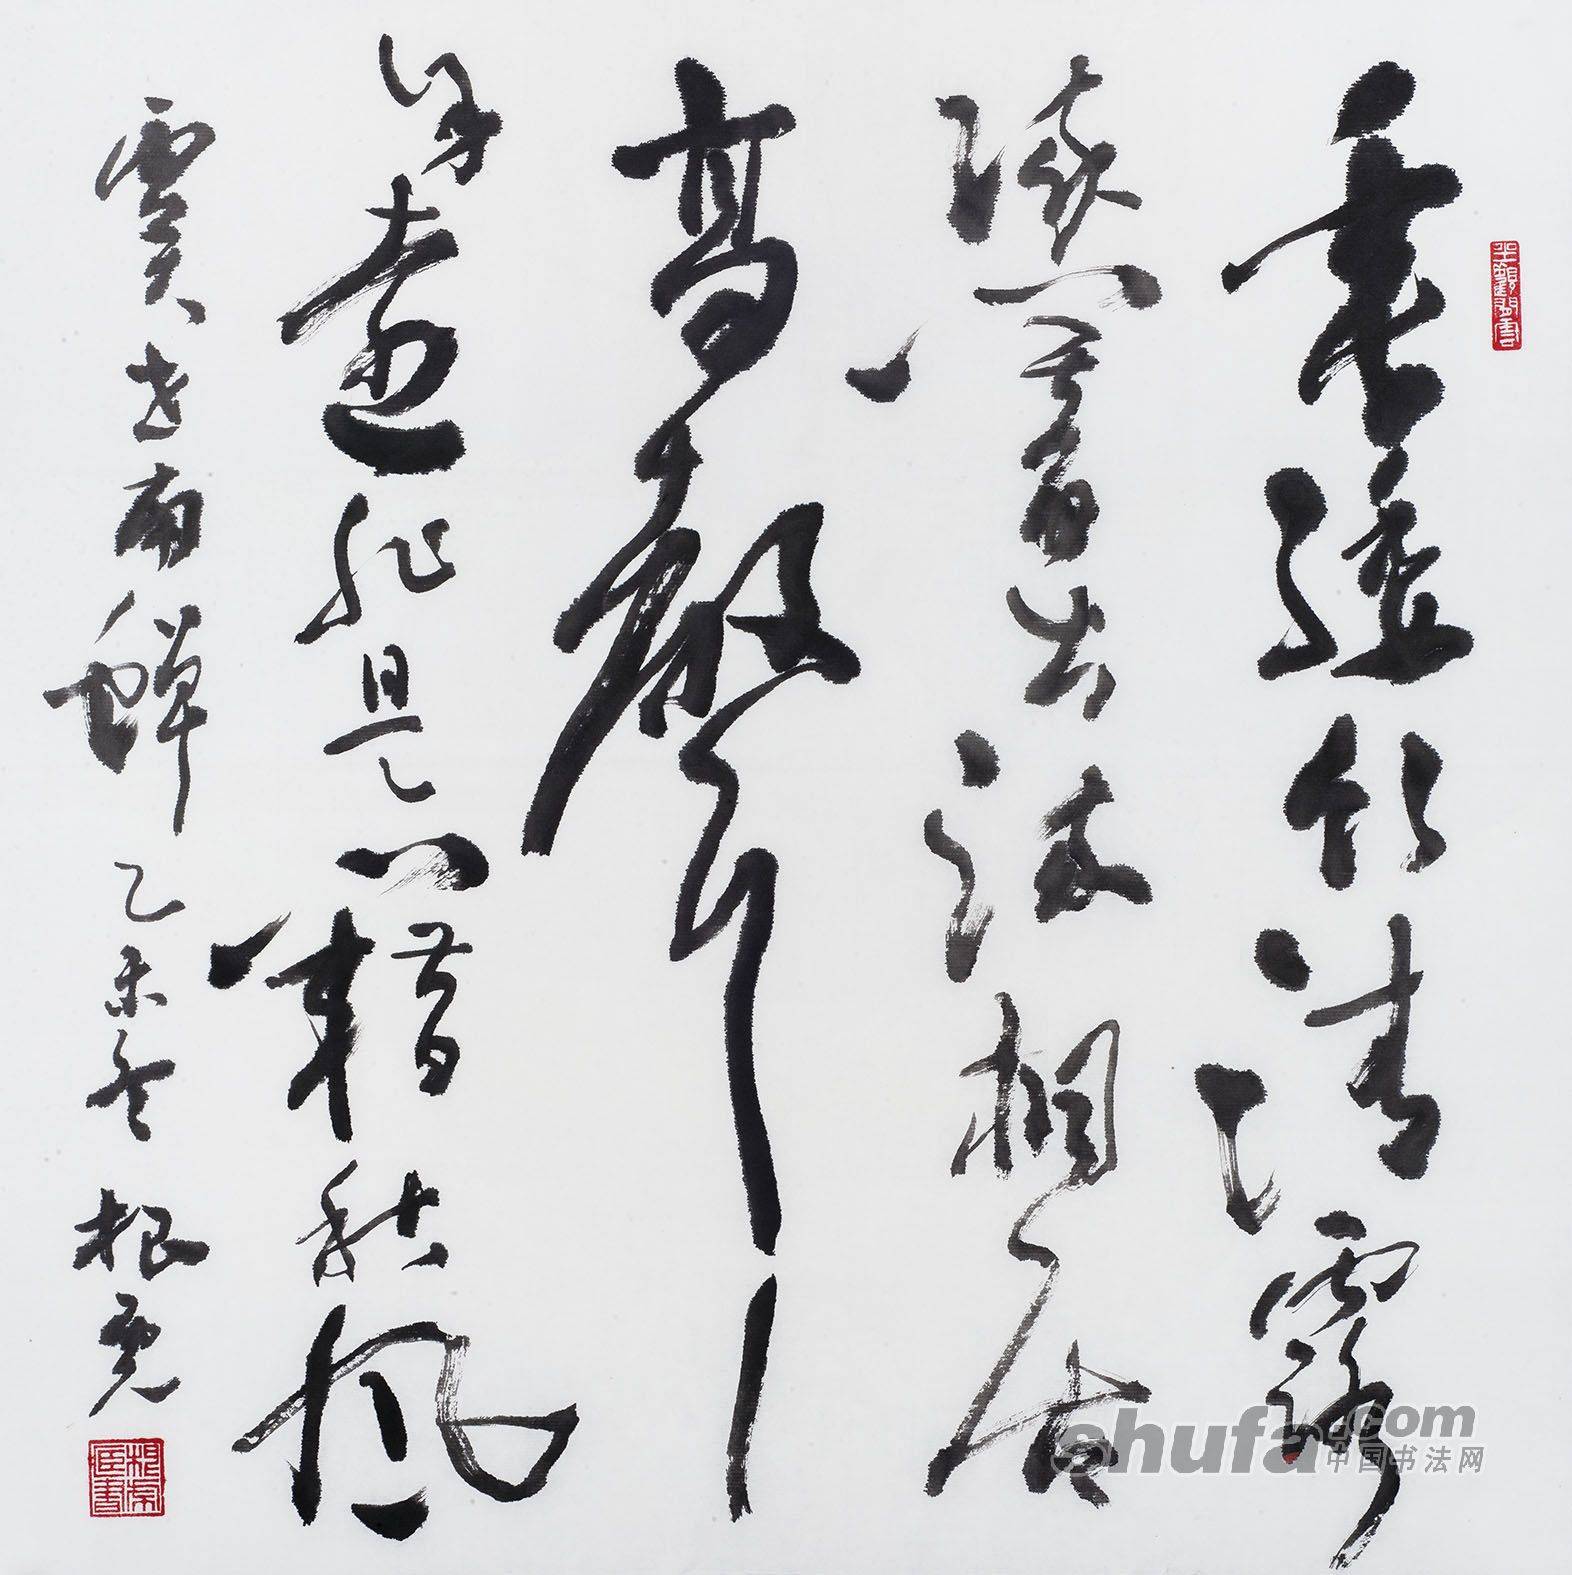 垂緌飲清露
響出疏桐居
高聲
遠非是藉秋風
虞世南蟬 乙未冬 根
shufa.com
中国书法网